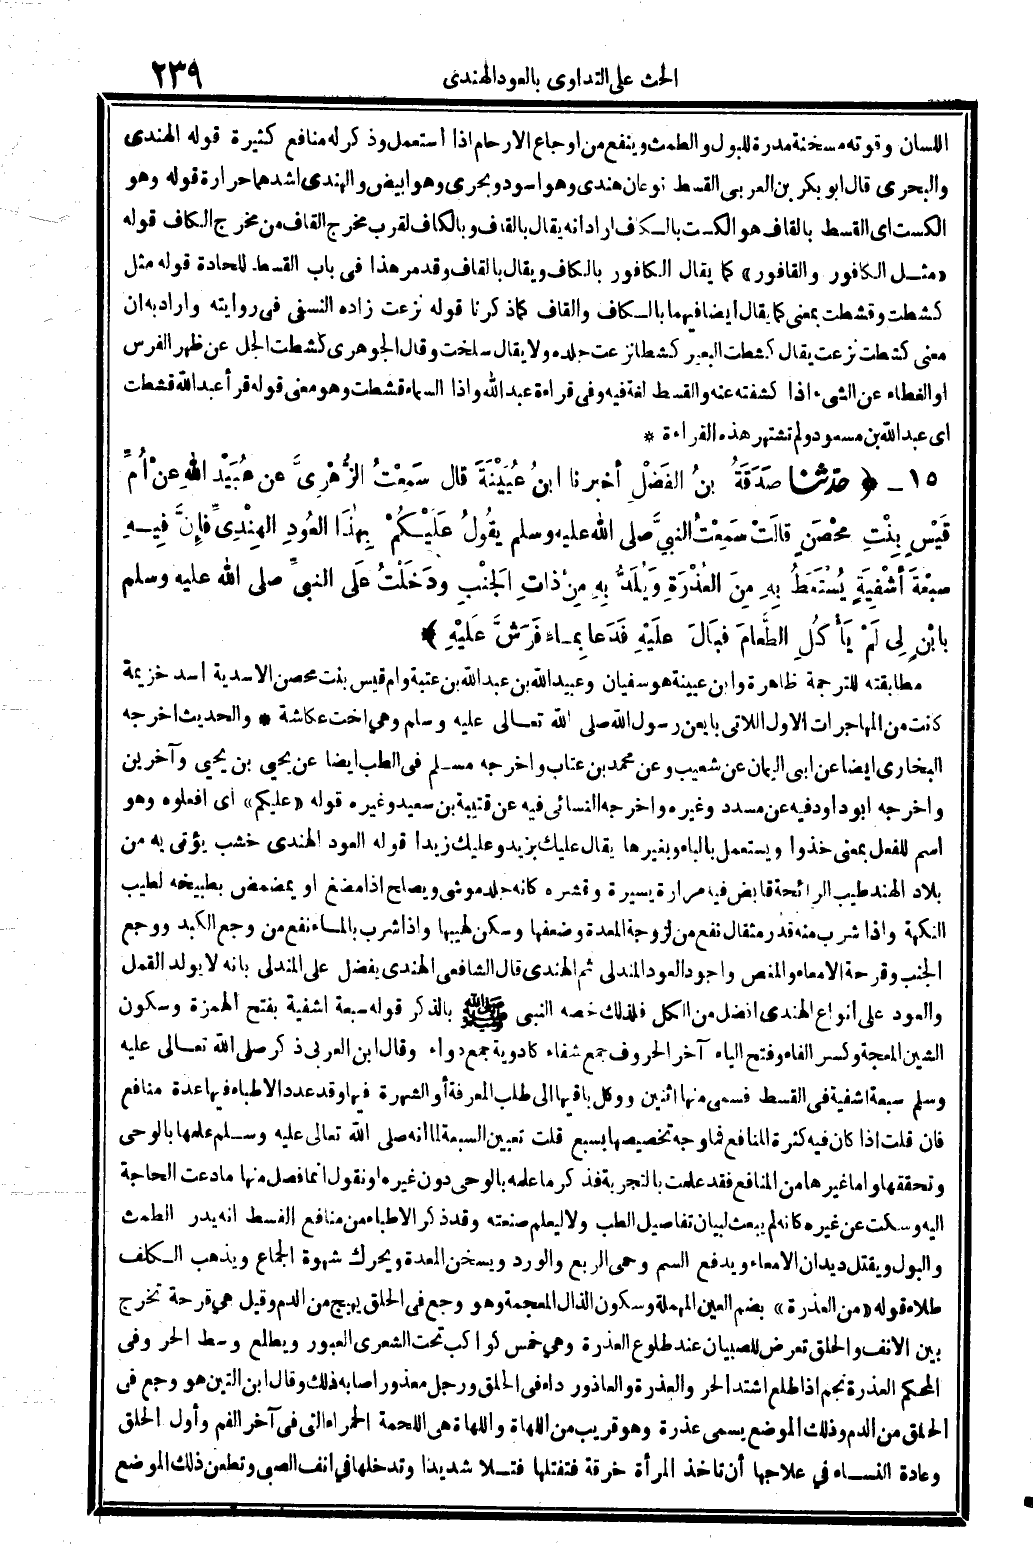 الحث على التداوى بالعود الهندى
٢٣٩
اللسان وقوته مسخنة مدرة للبول والطمث وينفع من اوجاع الارحام اذا استعمل وذكر له منافع كثيرة قوله الهندى
والبحرى قال ابو بكر بن العربى القسط نوعان هندى وهو اسود وبحرى وهو ابيض والهندى اشدهما حرارة قوله وهو
الكست اى القسط بالقاف هو الكست بالكاف اراد انه يقال بالقاف وبالكاف لقرب مخرج القاف من مخرج الكاف قوله
«مثل الكافور والقافور» كما يقال الكافور بالكاف ويقال بالقاف وقد مر هذا فى باب القسط للحادة قوله مثل
كشطت وقشطت بمعنى كما يقال ايضا فيهما بالكاف والقاف كما ذكرنا قوله نزعت زاده النسفى فى روايته واراد به ان
معنى كشطت نزعت يقال كشطت البعير كشطا نزعت جلده ولا يقال سلخت وقال الجوهرى كشطت الجل عن ظهر الفرس
او الغطاء عن الشىء اذا كشفته عنه والقسط لغة فيه وفى قراءة عبد الله واذا السماء قشطت وهو معنى قوله قرأ عبد الله قشطت
اى عبد الله بن مسعود ولم تشتهر هذه القراءة *
١٥ ـ ﴿ حدثنا صَدَقَةُ بنُ الفَضْلِ أخبرنا ابنُ عُيَيْنَةَ قال سَمِعْتُ الزُّهْرِيَّ عن عُبَيْدِ اللهِ عنْ أُمِّ
قَيْسٍ بِنْتِ مِحْصَنٍ قالَتْ سَمِعْتُ النبيَّ صلى الله عليه وسلم يقولُ عَلَيْكُمْ بِهٰذَا العُودِ الهِنْدِىِّ فإنَّ فِيهِ
سبْعَةَ أشْفِيَةٍ يُسْتَعَطُ بِهِ مِنَ العُذْرَةِ وَيُلَدُّ بِهِ مِنْ ذاتِ الجَنْبِ ودَخَلْتُ عَلَى النبيِّ صلى الله عليه وسلم
بابْنٍ لِى لَمْ يَأْكُلِ الطَّعامَ فَبالَ علَيْهِ فَدَعا بِماءٍ فَرَشَّ عَلَيْهِ ﴾
مطابقته للترجمة ظاهرة وابن عيينة هو سفيان وعبيد الله بن عبد الله بن عتبة وام قيس بنت محصن الاسدية اسد خزيمة
كانت من المهاجرات الاول اللاتى بايعن رسول الله صلى الله تعالى عليه وسلم وهى اخت عكاشة * والحديث اخرجه
البخارى ايضا عن ابى اليمان عن شعيب وعن محمد بن عتاب واخرجه مسلم فى الطب ايضا عن يحيى بن يحيى وآخرين
واخرجه ابو داود فيه عن مسدد وغيره واخرجه النسائى فيه عن قتيبة بن سعيد وغيره قوله «عليكم» أى افعلوه وهو
اسم للفعل بمعنى خذوا ويستعمل بالباء وبغيرها يقال عليك بزيد وعليك زيدا قوله العود الهندى خشب يؤتى به من
بلاد الهند طيب الرائحة قابض فيه مرارة يسيرة وقشره كانه جلد موشى ويصلح اذا مضغ او يمضمض بطبيخه لطيب
النكهة واذا شرب منه قدر مثقال نفع من لزوجة المعدة وضعفها وسكن لهيبها واذا شرب بالماء نفع من وجع الكبد ووجع
الجنب وقرحة الامعاء والمغص واجود العود المندلى ثم الهندى قال الشافعى الهندى يفضل على المندلى بانه لا يولد القمل
والعود على أنواع الهندى افضل من الكل فلذلك خصه النبى ﷺ بالذكر قوله سبعة اشفية بفتح الهمزة وسكون
الشين المعجمة وكسر الفاء وفتح الياء آخر الحروف جمع شفاء كادوية جمع دواء وقال ابن العربى ذكر صلى الله تعالى عليه
وسلم سبعة اشفية فى القسط فسمى منها اثنين ووكل باقيها الى طلب المعرفة أو الشهرة فيها وقد عدد الاطباء فيها عدة منافع
فان قلت اذا كان فيه كثرة المنافع فما وجه تخصيصها بسبع قلت تعيين السبعة لما انه صلى الله تعالى عليه وسلم علمها بالوحى
وتحققها واما غيرها من المنافع فقد علمت بالتجربة فذكر ما علمه بالوحى دون غيره او نقول انما فصل منها ما دعت الحاجة
اليه وسكت عن غيره كانه لم يبعث لبيان تفاصيل الطب ولا ليعلم صنعته وقد ذكر الاطباء من منافع القسط انه يدر الطمث
والبول ويقتل ديدان الامعاء ويدفع السم وحمى الربع والورد ويسخن المعدة ويحرك شهوة الجماع ويذهب الكلف
طلاء قوله «من العذرة» بضم العين المهملة وسكون الذال المعجمة وهو وجع فى الحلق يهيج من الدم وقيل هى قرحة تخرج
بين الانف والحلق تعرض للصبيان عند طلوع العذرة وهى خمس كواكب تحت الشعرى العبور ويطلع وسط الحر وفى
المحكم العذرة نجم اذا طلع اشتد الحر والعذرة والعاذور داء فى الحلق ورجل معذور اصابه ذلك وقال ابن التين هو وجع فى
الحلق من الدم وذلك الموضع يسمى عذرة وهو قريب من اللهاة واللهاة هى اللحمة الحمراء التى فى آخر الفم وأول الحلق
وعادة النساء فى علاجها أن تاخذ المرأة خرقة فتفتلها فتلا شديدا وتدخلها فى أنف الصبى وتطعن ذلك الموضع